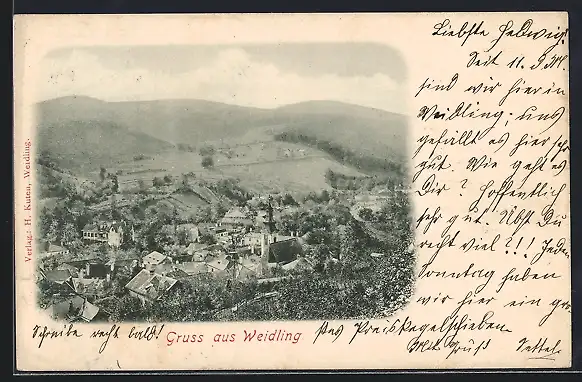 Liebste Hedwig!
Seit 11. d. M.
sind wir hier in
Weidling; uns
gefällt es hier sehr
gut. Wie geht es
Dir? Hoffentlich
sehr gut. Übst Du
recht viel?!! Jeden
Sonntag haben
wir hier ein gro-
ßes Preiskegelschieben.
Mit Gruß
Schreibe recht bald!
Gruss aus Weidling
Verlag: H. Kuten, Weidling.